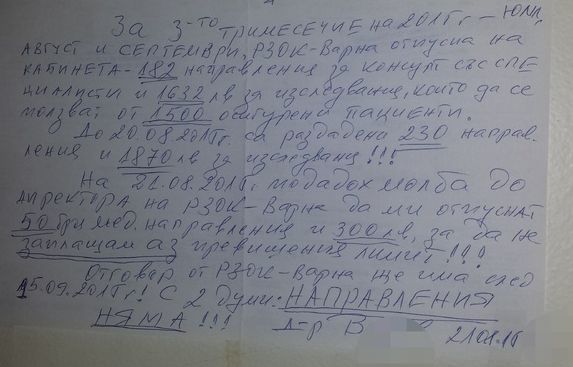 За 3-то тримесечие на 2015г - юли,
август и септември, РЗОК-Варна отпусна на
кабинета - 182 направления за консулт със спе
циалисти и 1632 лв за изследвания, които да се
ползват от 1500 осигурени пациенти.
До 20.08.2015г. са раздадени 230 направ-
ления и 1870 лв за изследвания!!!
На 21.08.2015г подадох молба до
директора на РЗОК-Варна да ми отпуснат
50 бр. мед. направления и 300 лв, за да не
заплащам аз превишения лимит!!!
Отговор от РЗОК-Варна ще има след
15.09.2015г! С 2 думи: НАПРАВЛЕНИЯ
НЯМА!!! Д-р В